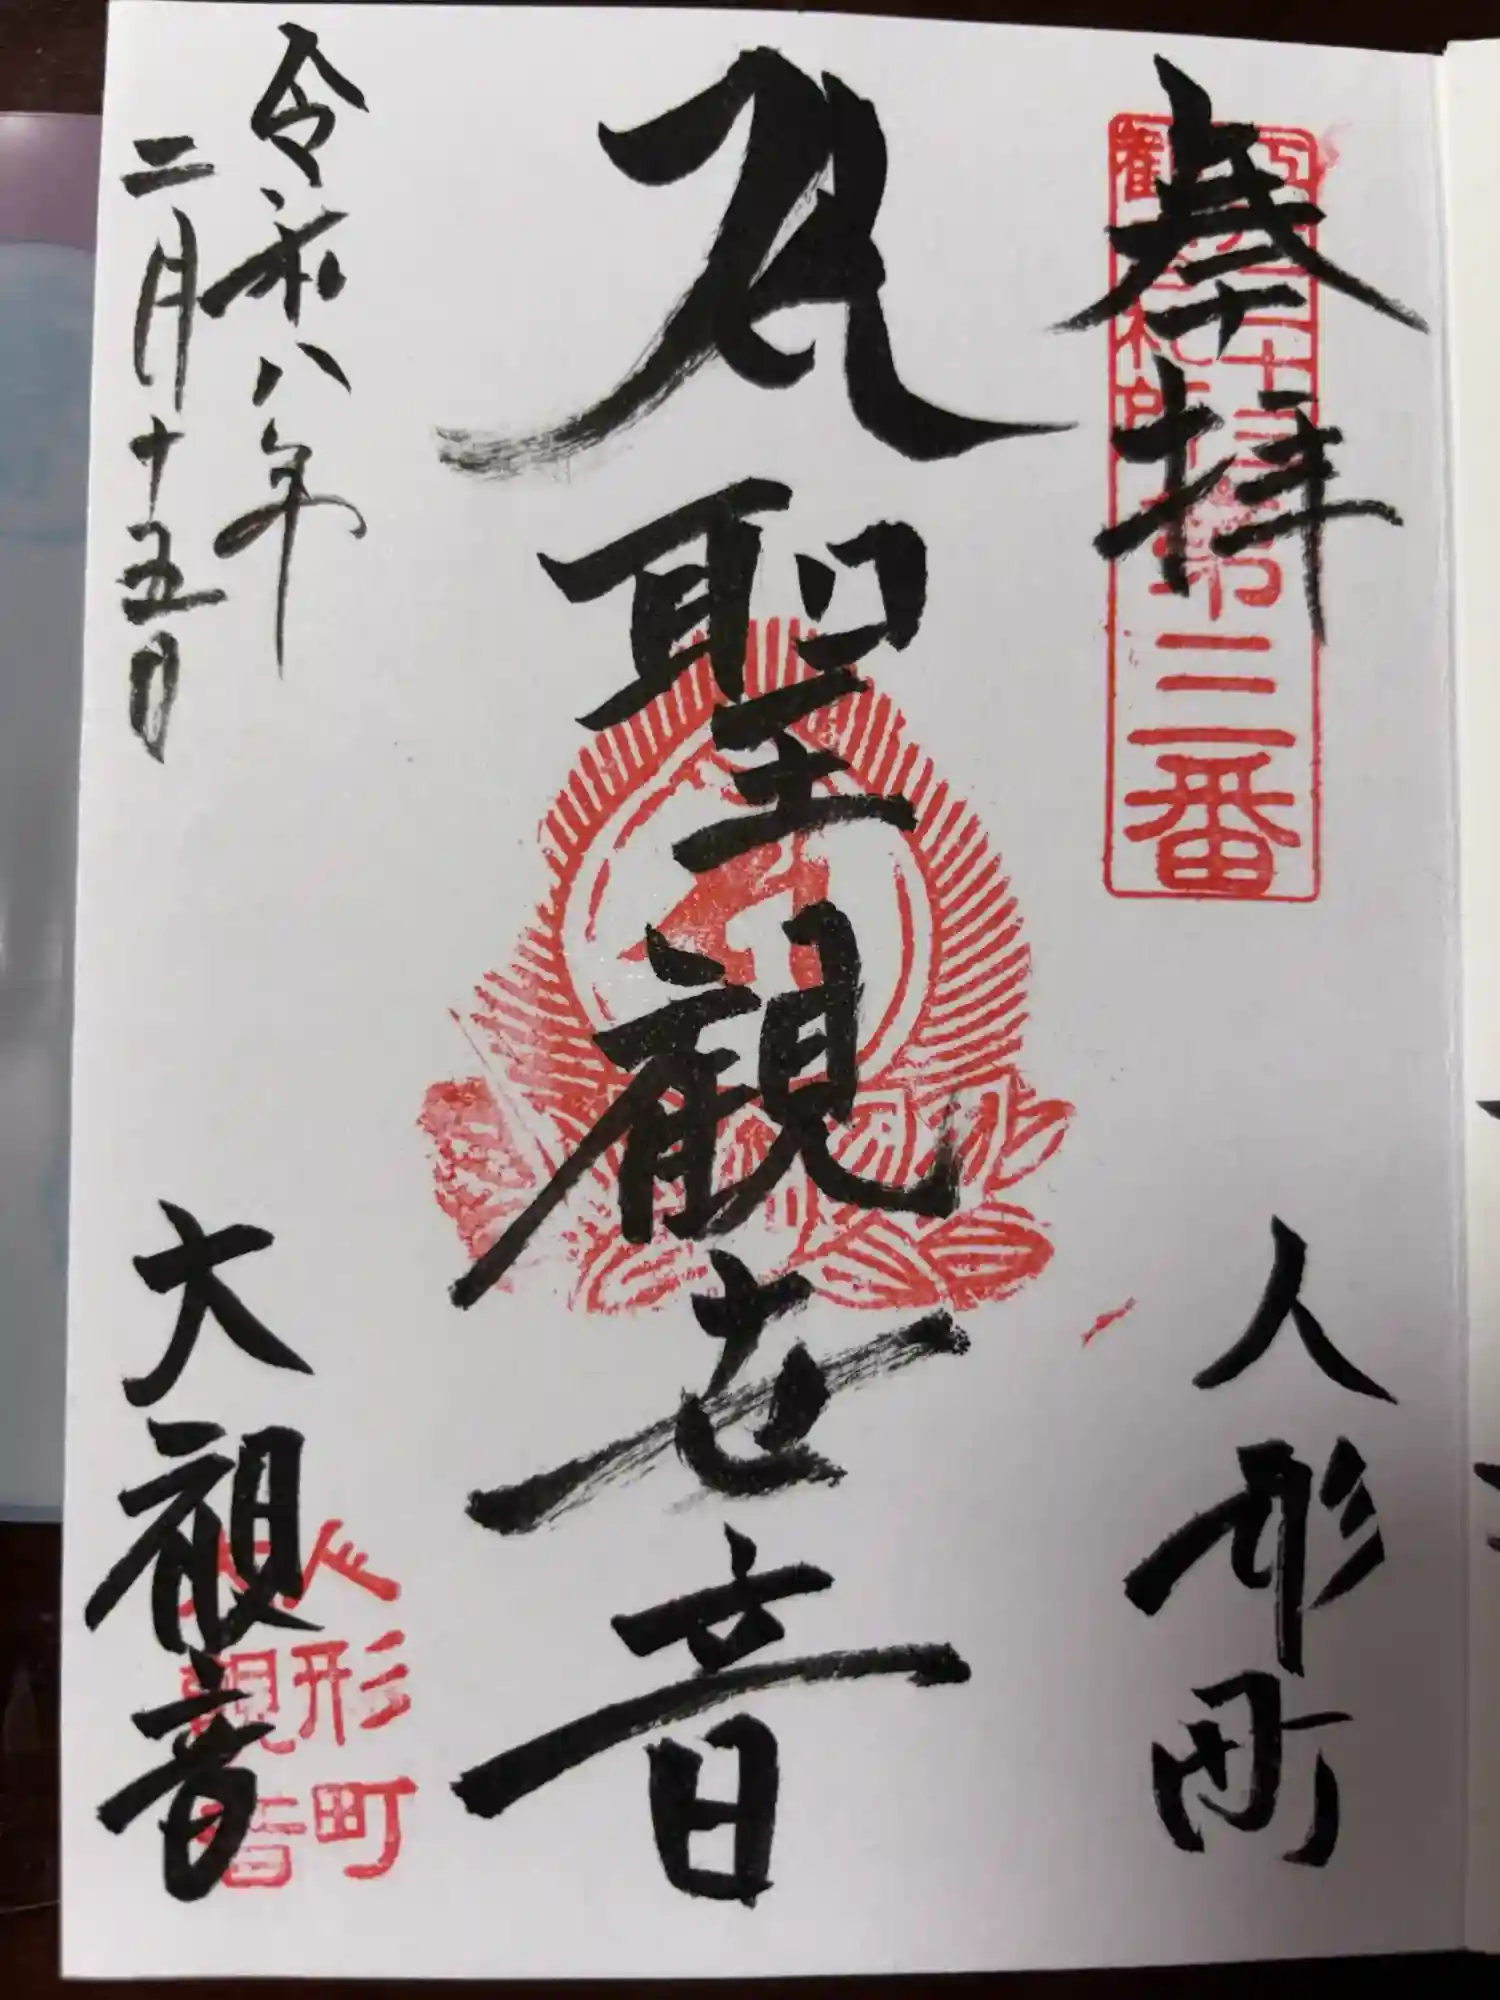 奉拝
人形町
聖観世音
令和八年
二月十五日
大観音
第三番
人形町